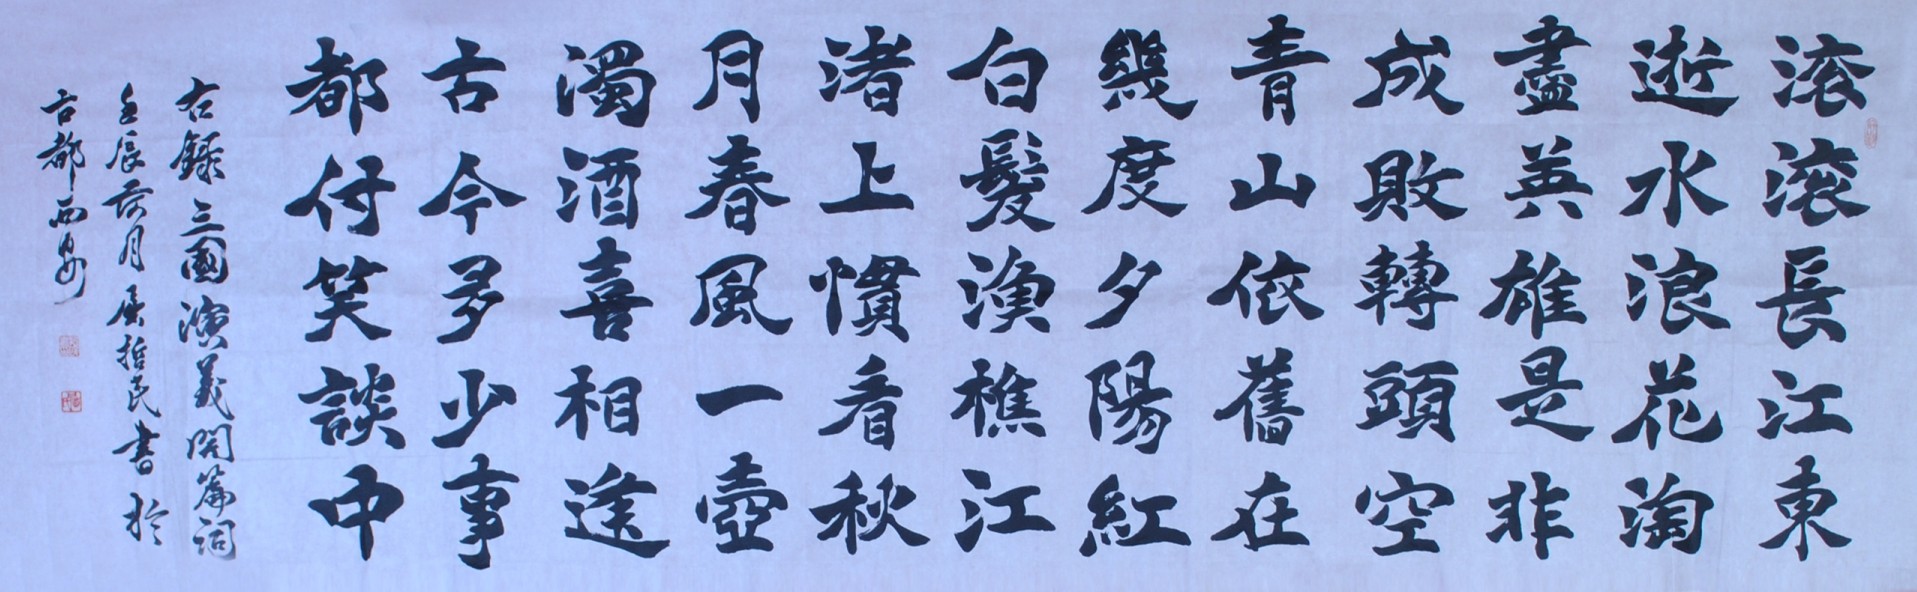 滚滚長江東
逝水浪花淘
盡英雄是非
成敗轉頭空
青山依舊在
幾度夕陽紅
白髮漁樵江
渚上慣看秋
月春風一壺
濁酒喜相逢
古今多少事
都付笑談中
右錄三國演義開篇詞
壬辰荷月唐哲民書於
古都西安